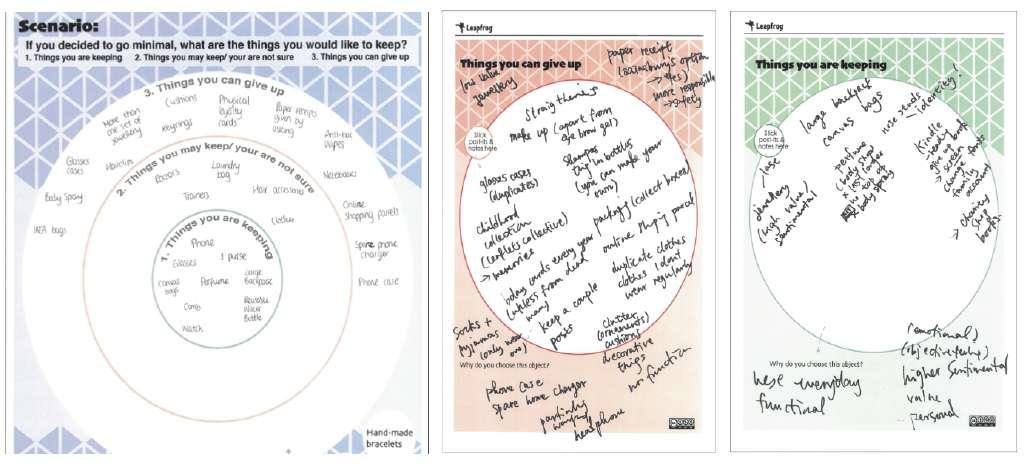 Scenario:
If you decided to go minimal, what are the things you would like to keep?
1. Things you are keeping 2. Things you may keep/ your are not sure 3. Things you can give up
3. Things you can give up
More than one set of jewellery
Keyrings
Cushions
Physical loyalty cards
Paper receipts given by asking
Anti-bac Wipes
Glasses cases
Body Spray
IKEA bags
Notebooks
Online shopping parcels
Spare phone charger
Phone case
2. Things you may keep/ your are not sure
Hairclips
Razors
Laundry bag
Trainers
Hair accessories
Clothes
1. Things you are keeping
Phone
Glasses
1 purse
Canvas bags
Perfume
Large Backpack
Comb
Reusable Water Bottle
Watch
Hand-made
bracelets
Leapfrog
Things you can give up
low value
jewellery
paper receipt
more responsible
→ safety
Stick
post-its &
notes here
straighteners
make up (apart from
eye brow gel)
shampoo
thing in bottles
(you can make your
own)
glasses cases
(duplicates)
childhood
collection
(leaflets collective)
→ memories
packaging (collect boxes)
bday cards every year
(unless from dead
man)
keep a couple
posts
duplicate clothes
clothes I don't
wear regularly
clutter
(ornaments)
cushions
decorative
things
no function
socks +
pyjamas
(only wear
one)
Why do you choose this object?
phone case
spare home charger
partially
headphone
Leapfrog
Things you are keeping
Stick
post-its &
notes here
large backpack
canvas bags
nose studs
→ identity!
perfume
(body shop
x last longer
x body spray
Kindle
ready book
give up
→ screen
change fonts
family
account
→ charity
shop
books.
jewellery /
(high value/
sentimental
Why do you choose this object?
everyday
functional
(emotional)
higher sentimental
value
personal